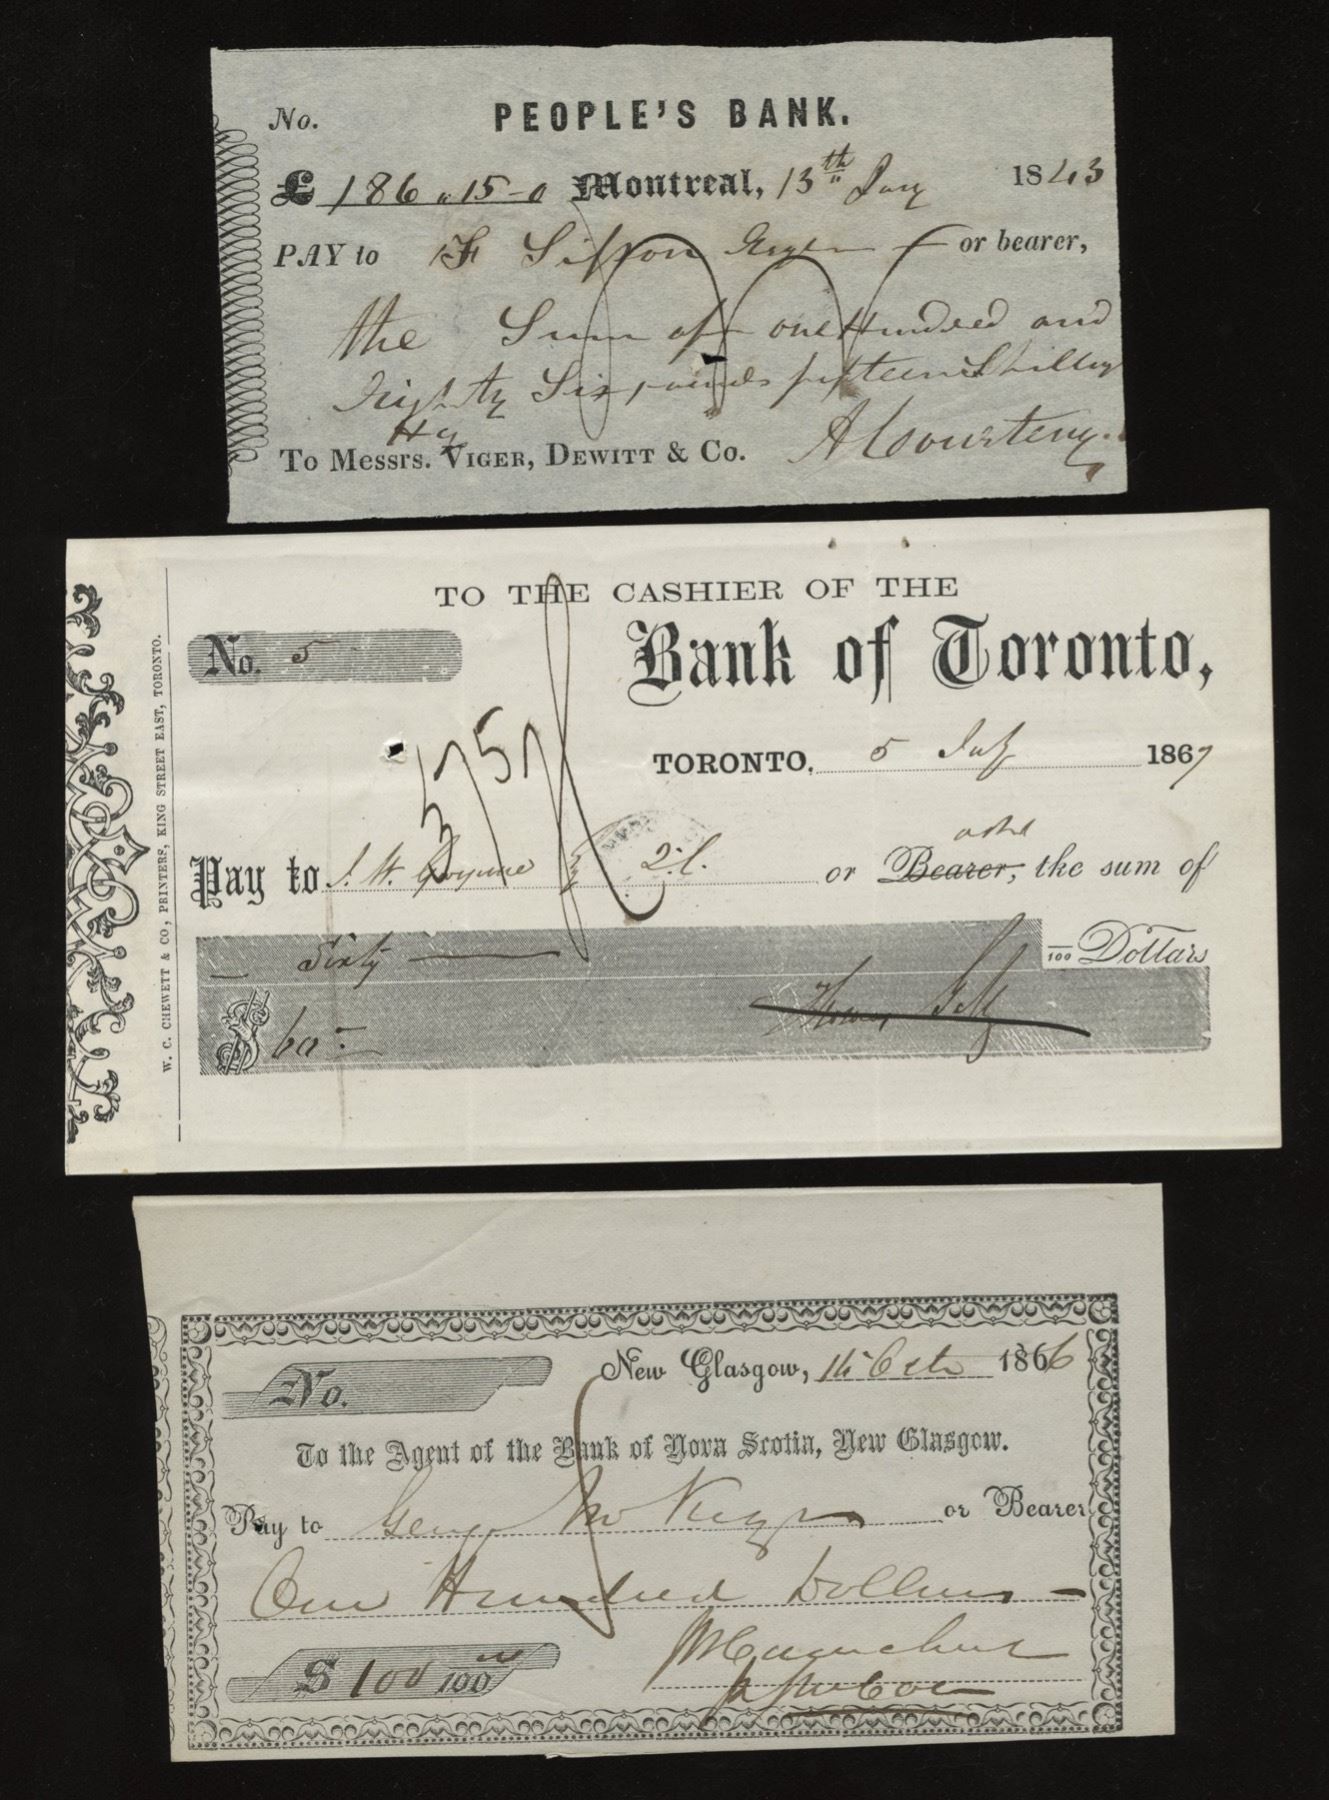 No. PEOPLE'S BANK.
£ 186 " 15 - 0 Montreal, 13th Jany 1843
PAY to or bearer,
the Sum of one Hundred and
Eighty Six pounds fifteen Shillings
To Messrs. VIGER, DEWITT & Co. A Courteny.
TO THE CASHIER OF THE
No. 5 Bank of Toronto,
TORONTO, 5 July 1867
3757
Pay to J. W. Gwynne Q.C. or Bearer, the sum of
Sixty /100 Dollars
$ 60
W. C. CHEWETT & CO, PRINTERS, KING STREET EAST, TORONTO.
No. New Glasgow, 1866
To the Agent of the Bank of Nova Scotia, New Glasgow.
Pay to or Bearer
One Hundred Dollars
$ 100 /100